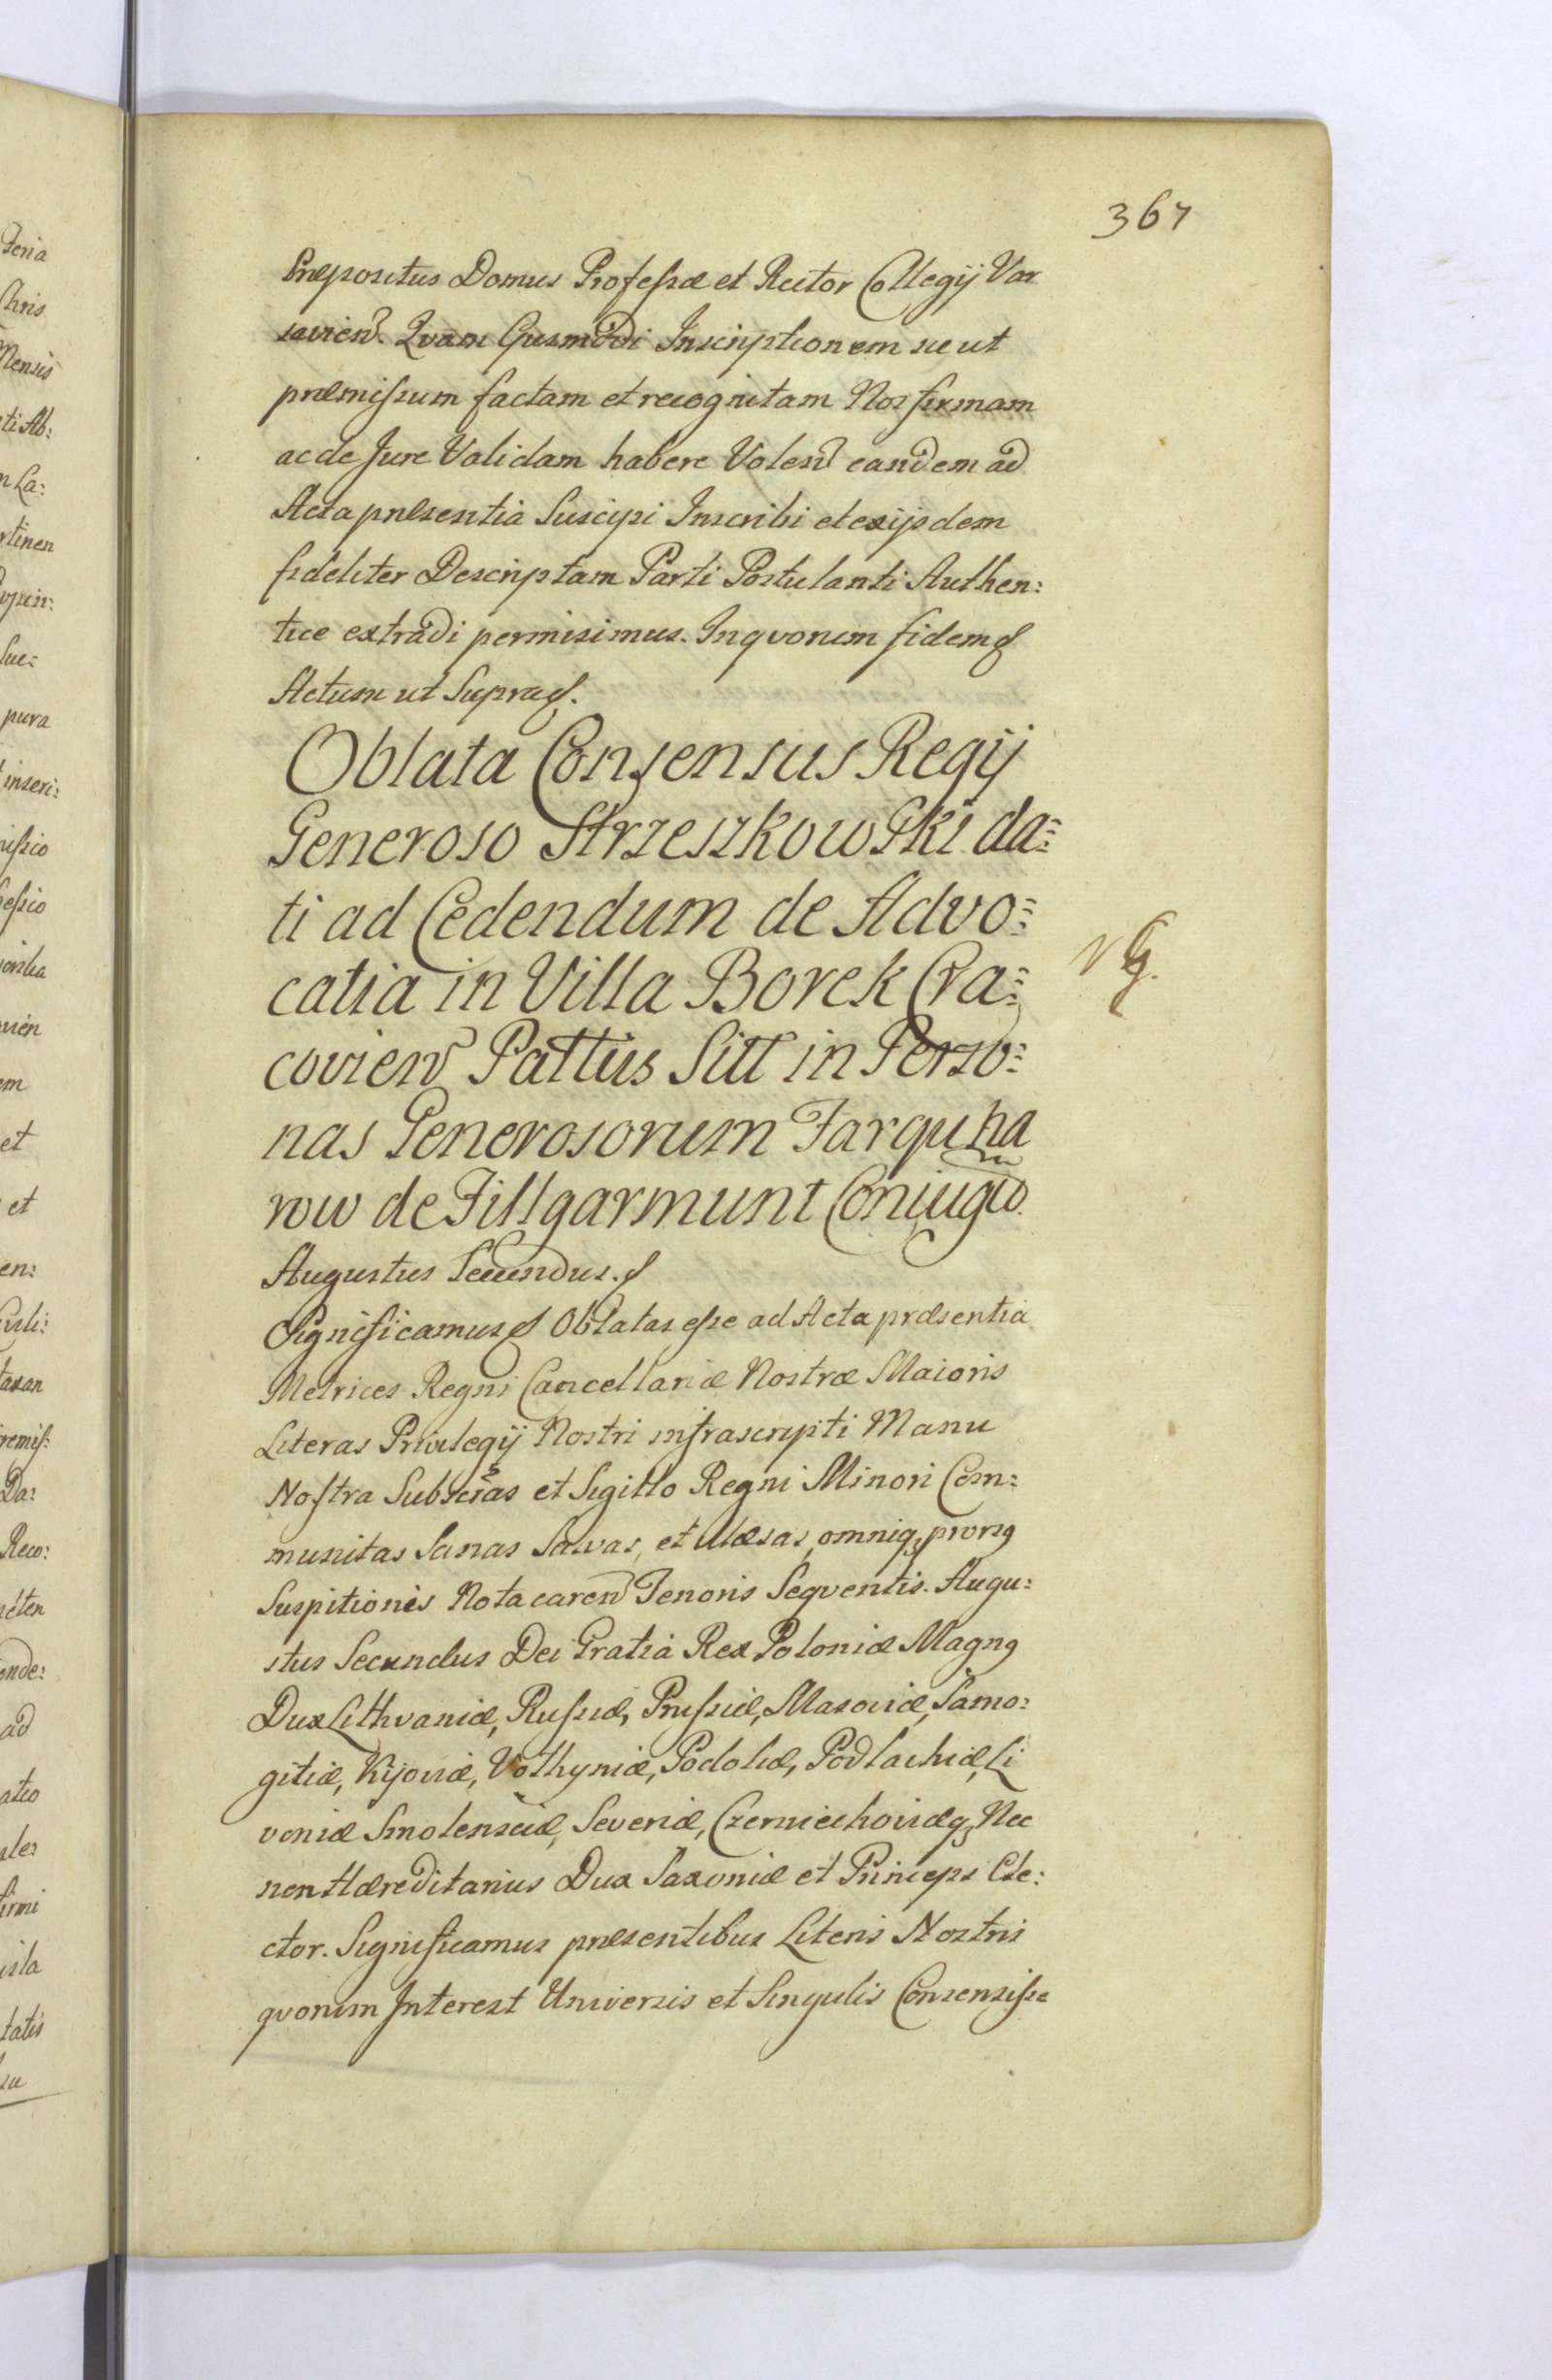 367
Præpositus Domus Professæ et Rector Collegij Var
savien. Qvam Ejusmodi Inscriptionem sic ut
præmissum factam et recognitam Nos firmam
ac de Jure Validam habere Volen eandem ad
Acta præsentia Suscipi Inscribi et exijsdem
fideliter Descriptam Parti Postulanti Authen:
tice extradi permisimus. In qvorum fidem
Actum ut Supra.
Oblata Consensus Regij
Generoso Strzeszkowski da:
ti ad Cedendum de Advo:
catia in Villa Borek Cra:
covien Pattus Sitt in Perso:
nas Generosorum Farquha
row de Fillgarmunt Coniugũ
NG.
Augustus Secundus.
Significamus Oblatas esse ad Acta præsentia
Metrices Regni Cancellariæ Nostræ Maioris
Literas Privilegij Nostri infrascripti Manu
Nostra Subscras et Sigillo Regni Minori Com:
munitas Sanas Salvas, et illæsas, omniq; prorsq
Suspitionis Nota caren Tenoris Seqventis. Augu:
stus Secundus Dei Gratia Rex Poloniæ Magnq
Dux Lithvaniæ, Russiæ, Prussiæ, Masoviæ, Samo:
gitiæ, Kijoviæ, Volhyniæ, Podoliæ, Podlachiæ, Li
voniæ Smolensciæ, Severiæ, Czerniechoviæq; Nec
non Hæreditarius Dux Saxoniæ et Princeps Ele:
ctor. Significamus præsentibus Literis Nostris
qvorum Interest Universis et Singulis Consensisse